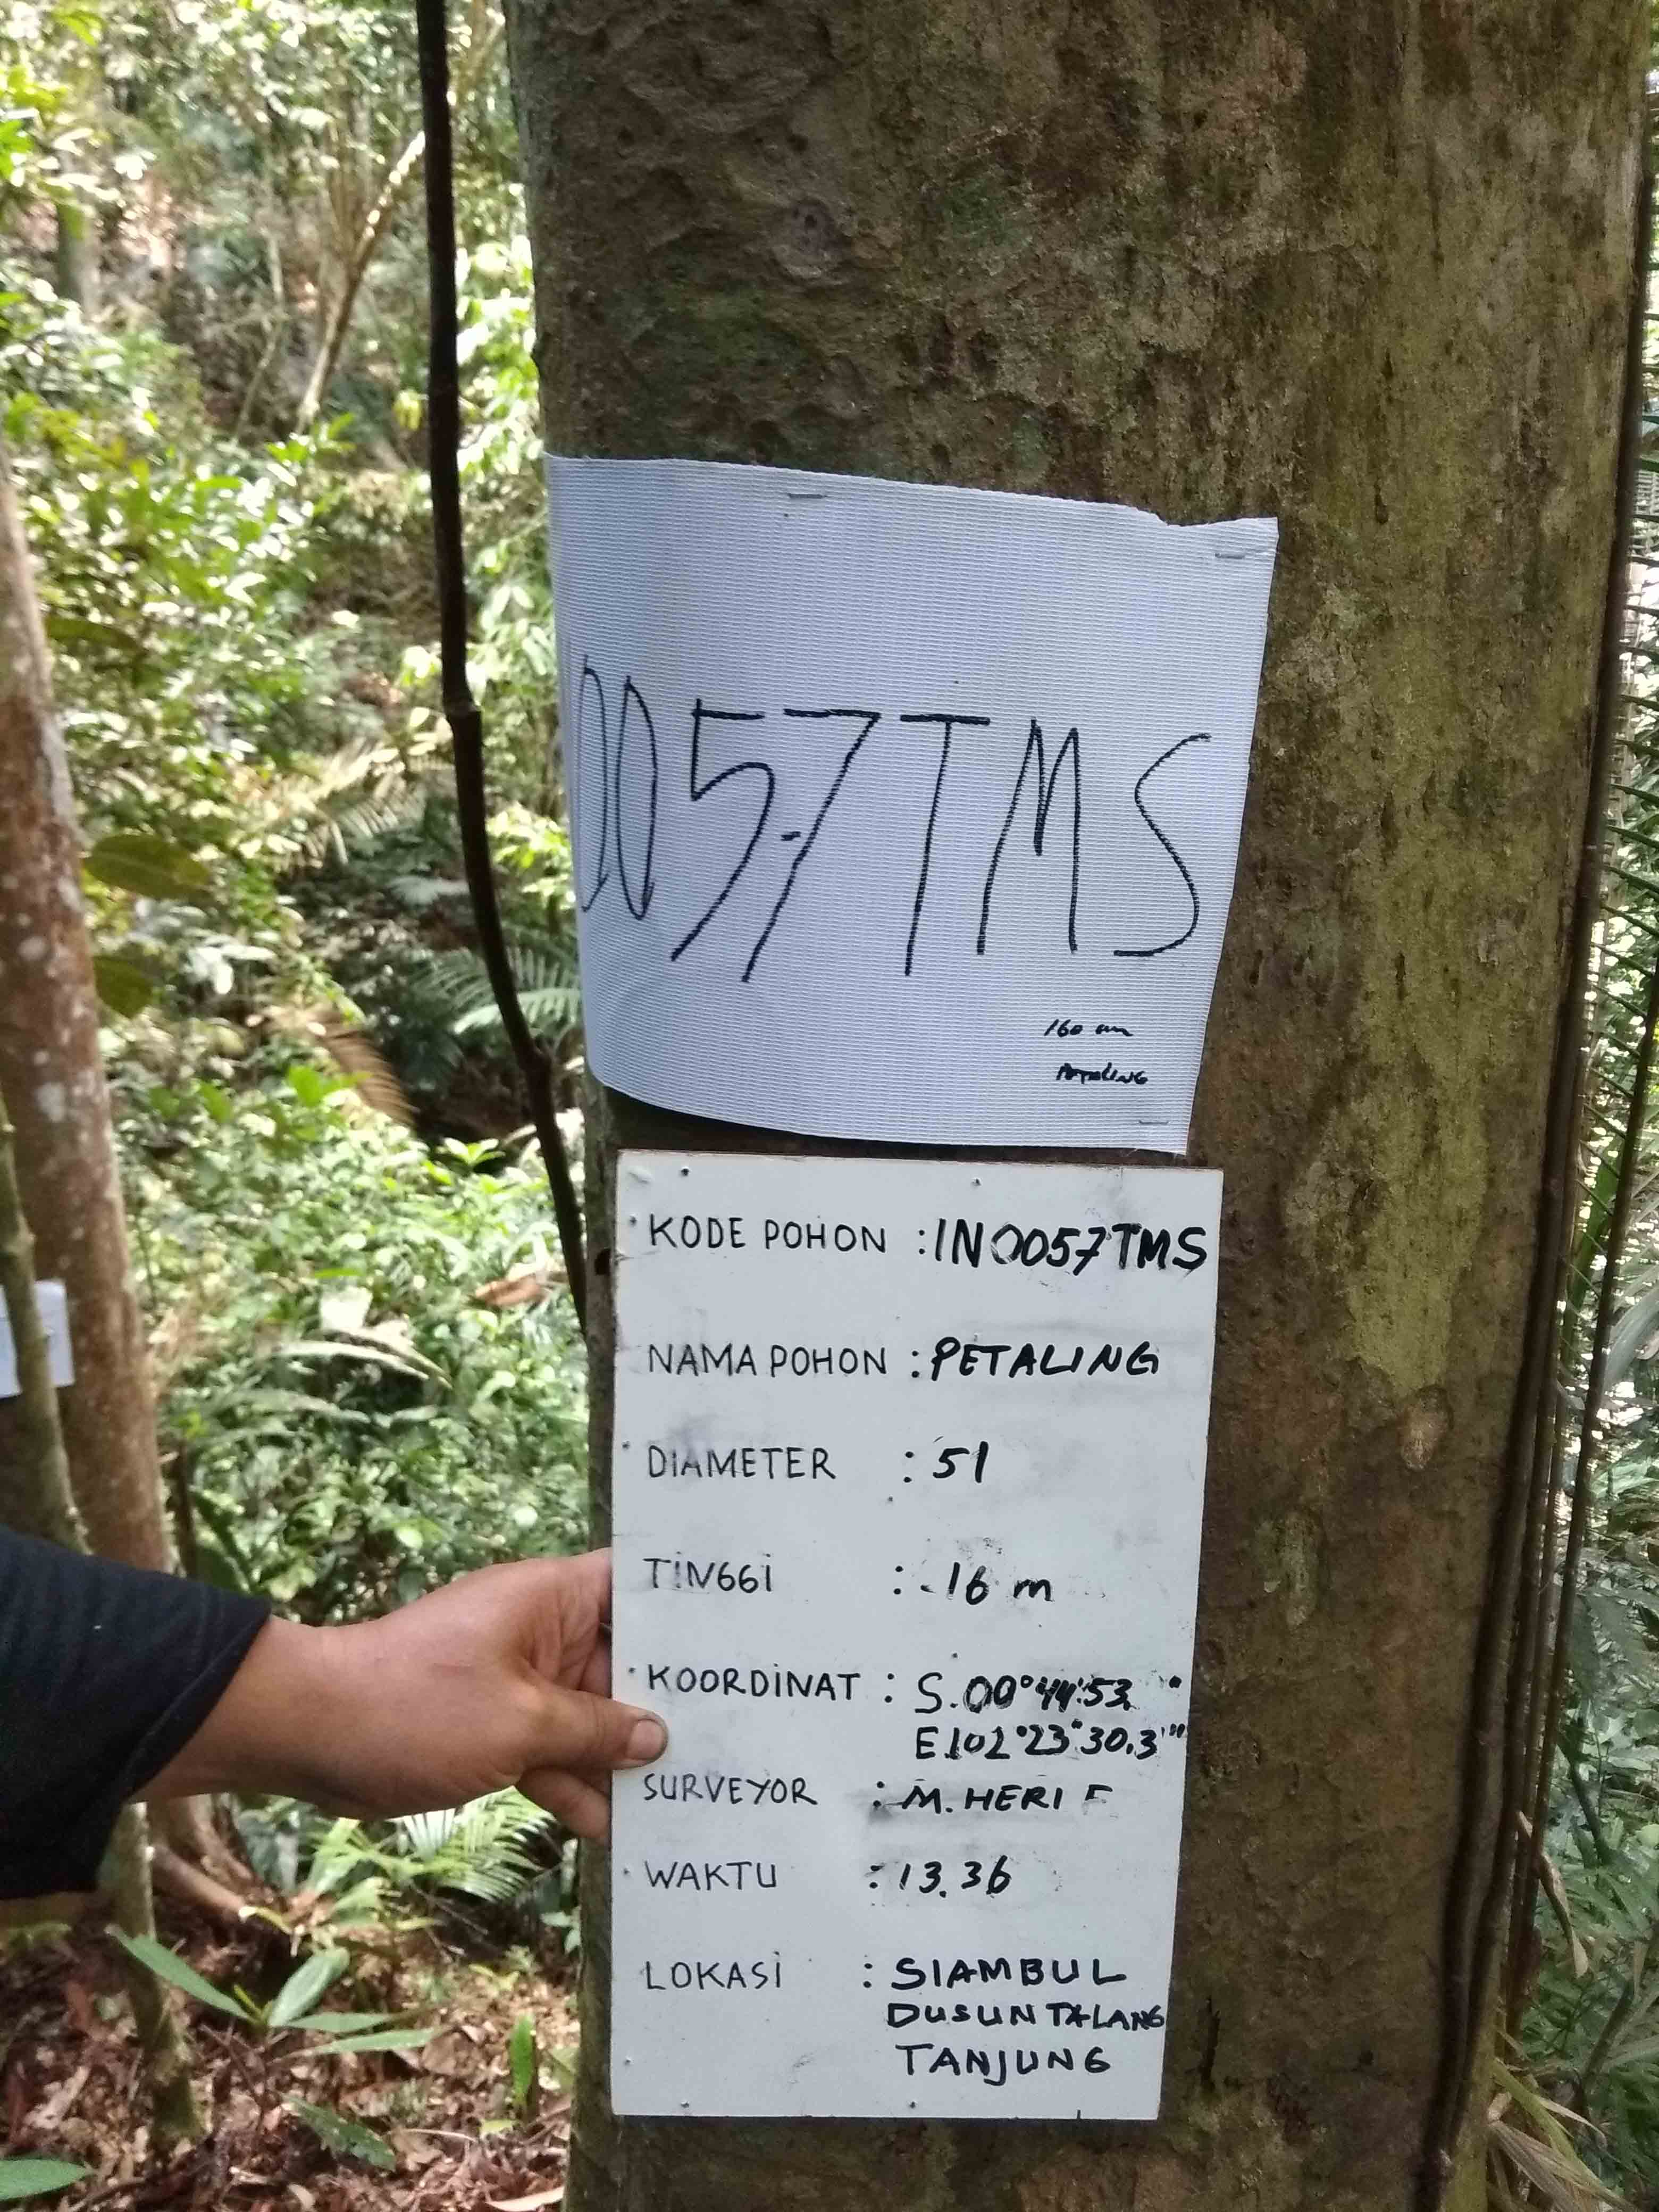 0057TMS
160 cm
PETALING
KODE POHON : IN0057TMS
NAMA POHON : PETALING
DIAMETER : 51
TINGGI : 16 m
KOORDINAT : S.00°44'53 "
E.102°23'30.3"
SURVEYOR : M. HERI F
WAKTU : 13.36
LOKASI : SIAMBUL
DUSUN TALANG
TANJUNG